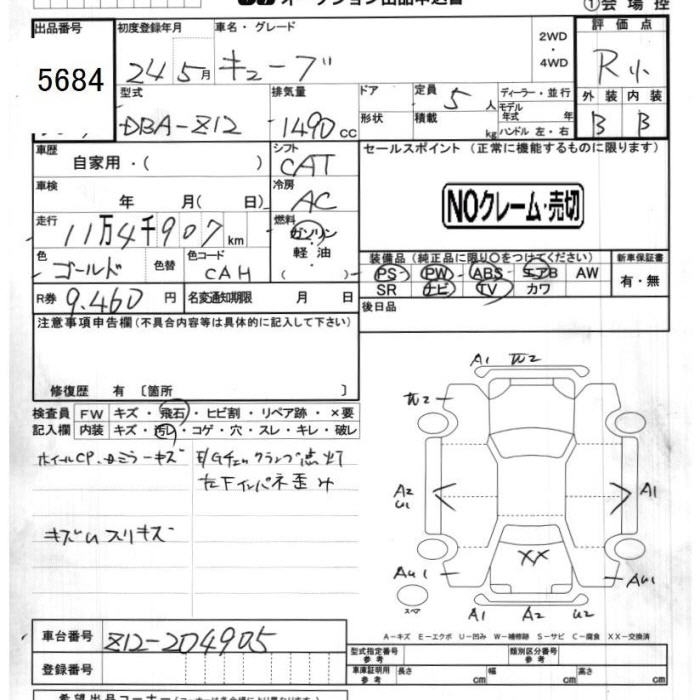 オークション出品申込書
①会場控
出品番号 初度登録年月 車名・グレード 評価点
5684 24 5月 キューブ 2WD ・ 4WD R小
型式 排気量 ドア 定員 ディーラー・並行 外装 内装
DBA-Z12 1490 cc 5人 モデル年式 年 B B
形状 積載 kg ハンドル 左・右
車歴 シフト セールスポイント (正常に機能するものに限ります)
自家用・( ) CAT
車検 冷房
年 月( 日) AC
NOクレーム・売切
走行 燃料
11万4千907km ガソリン・軽油・( )
色 色替 色コード
ゴールド CAH
装備品(純正品に限り○をつけてください) 新車保証書
PS PW ABS エアB AW 有・無
SR ナビ TV カワ
R券 9.460円 名変通知期限 月 日 後日品
注意事項申告欄(不具合内容等は具体的に記入して下さい)
修復歴 有 〔箇所 〕
検査員 FW キズ・飛石・ヒビ割・リペア跡・×要
記入欄 内装 キズ・汚れ・コゲ・穴・スレ・キレ・破レ
ホイールCP.ロミラーキズ
E/Gチェックランプ点灯
左下インパネ歪み
キズUスリキズ
A1
A2 U1
A1
XX
AU1
AU1
スペア
A1 A2 U2
A-キズ E-エクボ U-凹み W-補修跡 S-サビ C-腐食 XX-交換済
車台番号 Z12-204905
型式指定番号 参考 類別区分番号 参考
登録番号
車庫証明用 参考 長さ cm 幅 cm 高さ cm
希望出品コーナー